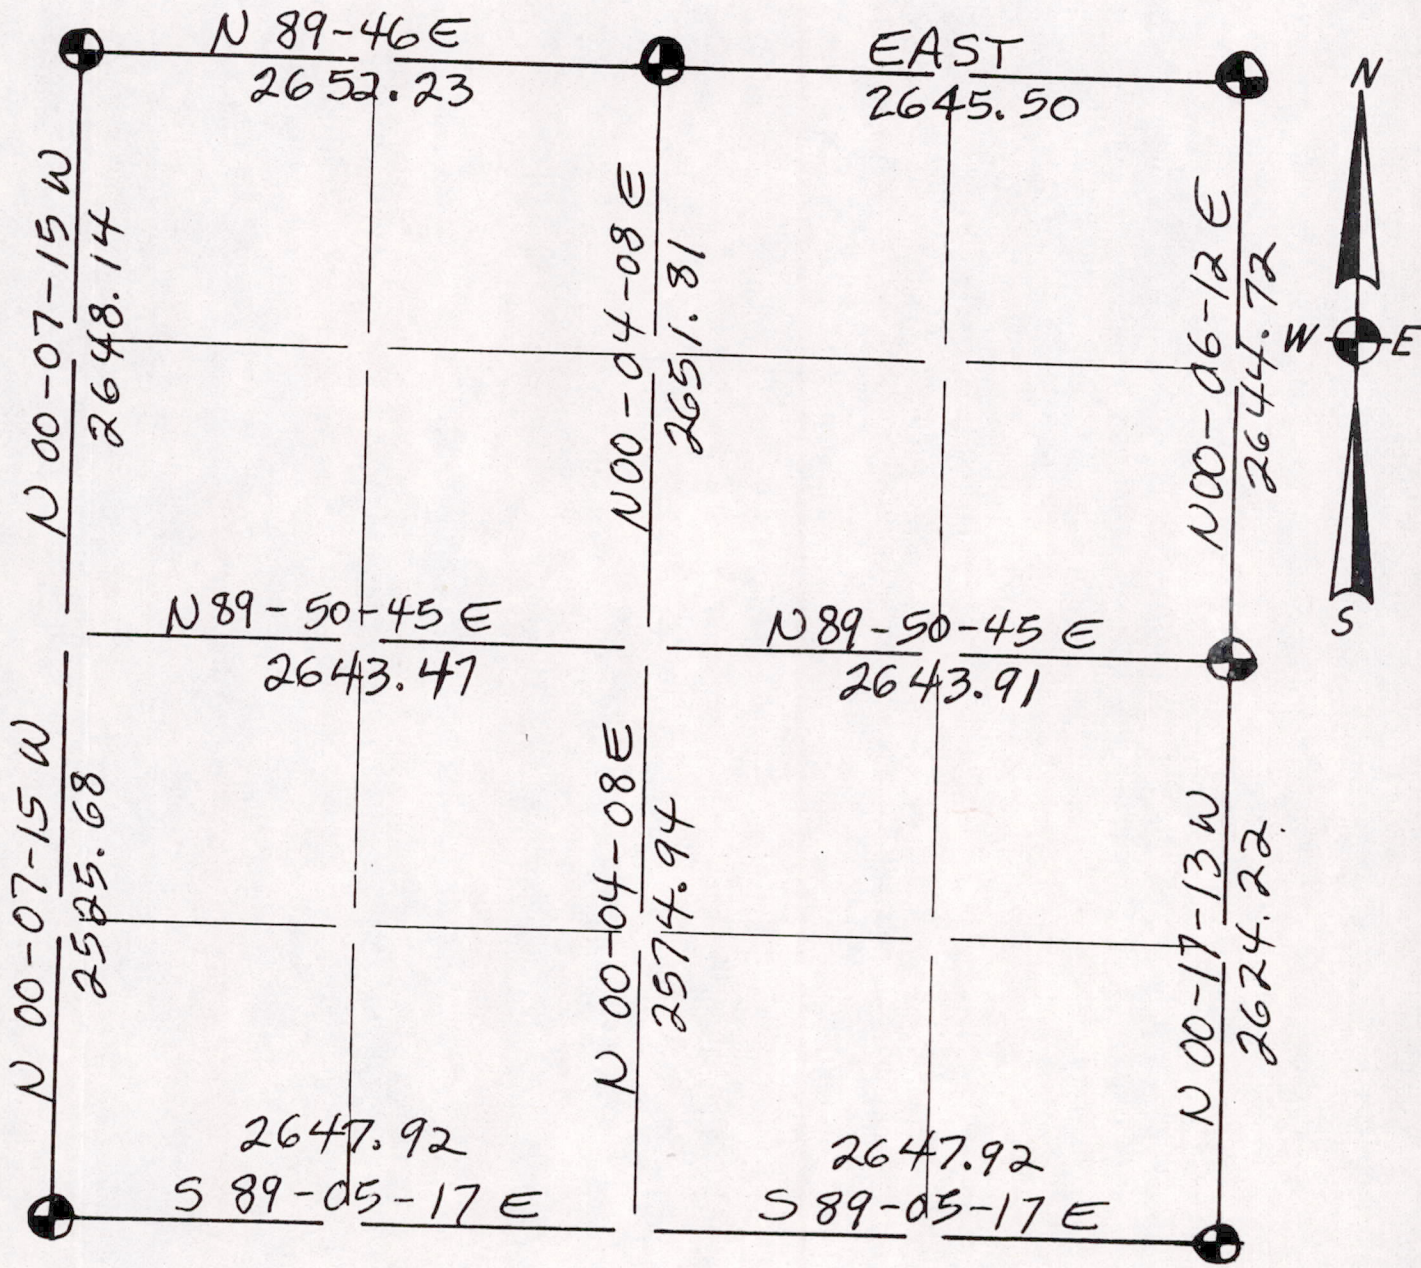 N 89-46 E
2652.23
EAST
2645.50
N
N 00-07-15 W
2648.14
N00-04-08 E
2651.81
N00-06-12 E
2644.72
W
E
S
N89-50-45 E
2643.47
N89-50-45 E
2643.91
N 00-07-15 W
2525.68
N 00-04-08 E
2574.94
N 00-17-13 W
2624.22
2647.92
S 89-05-17 E
2647.92
S 89-05-17 E